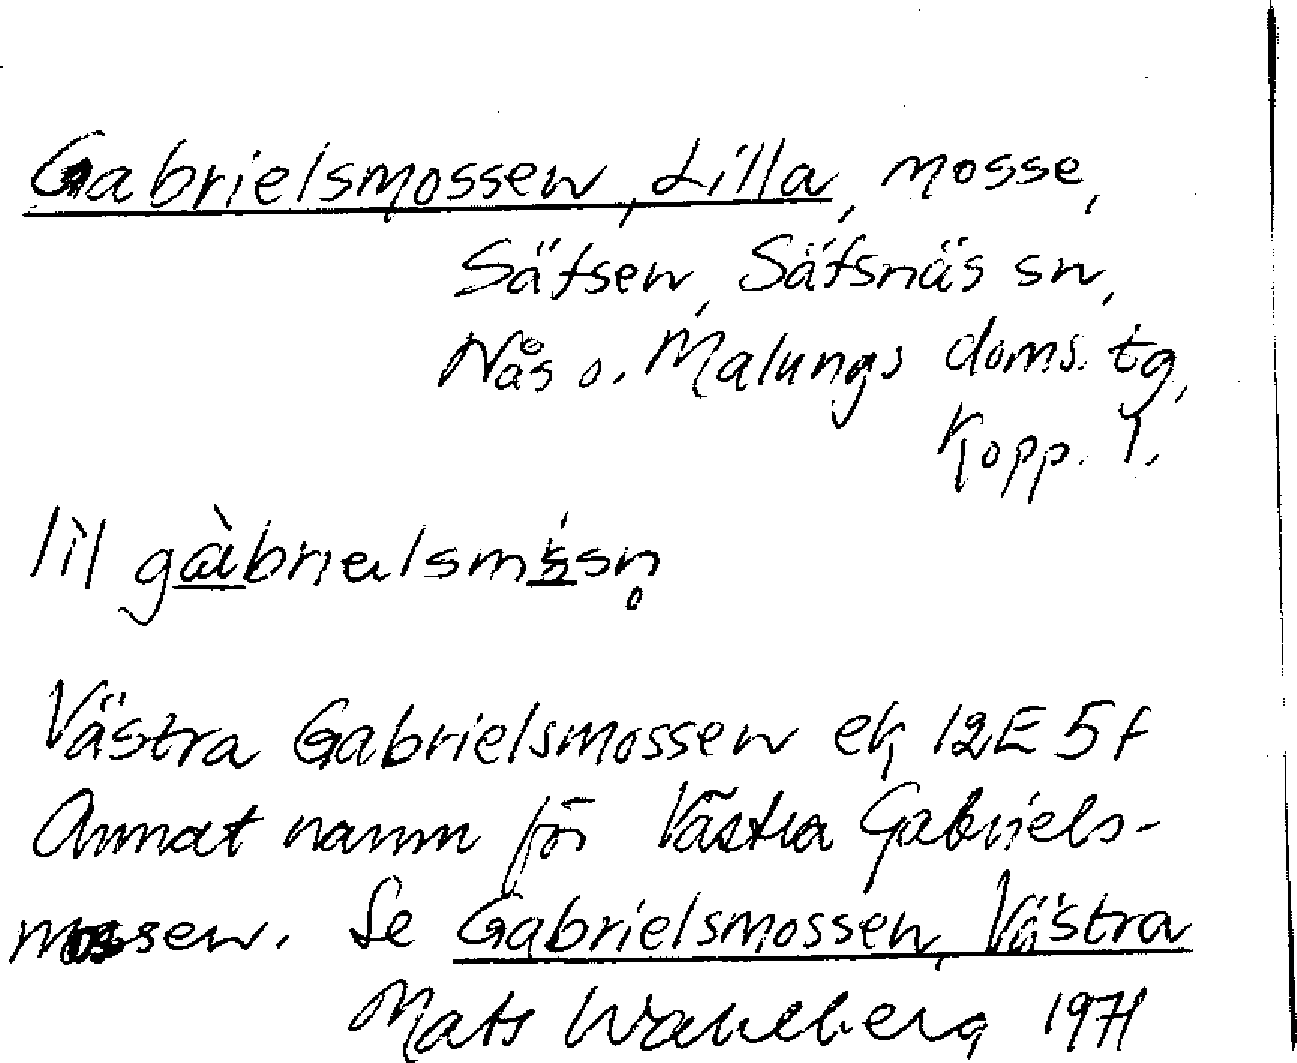 Gabrielsmossen, Lilla, mosse,
Säfsen, Säfsnäs sn,
Nås o. Malungs doms. tg,
Kopp. l.
lil
Västra Gabrielsmossen ek 12E 5f
Annat namn för Västra Gabriels-
mossen. Se Gabrielsmossen, Västra
Mats Wahlberg 1971